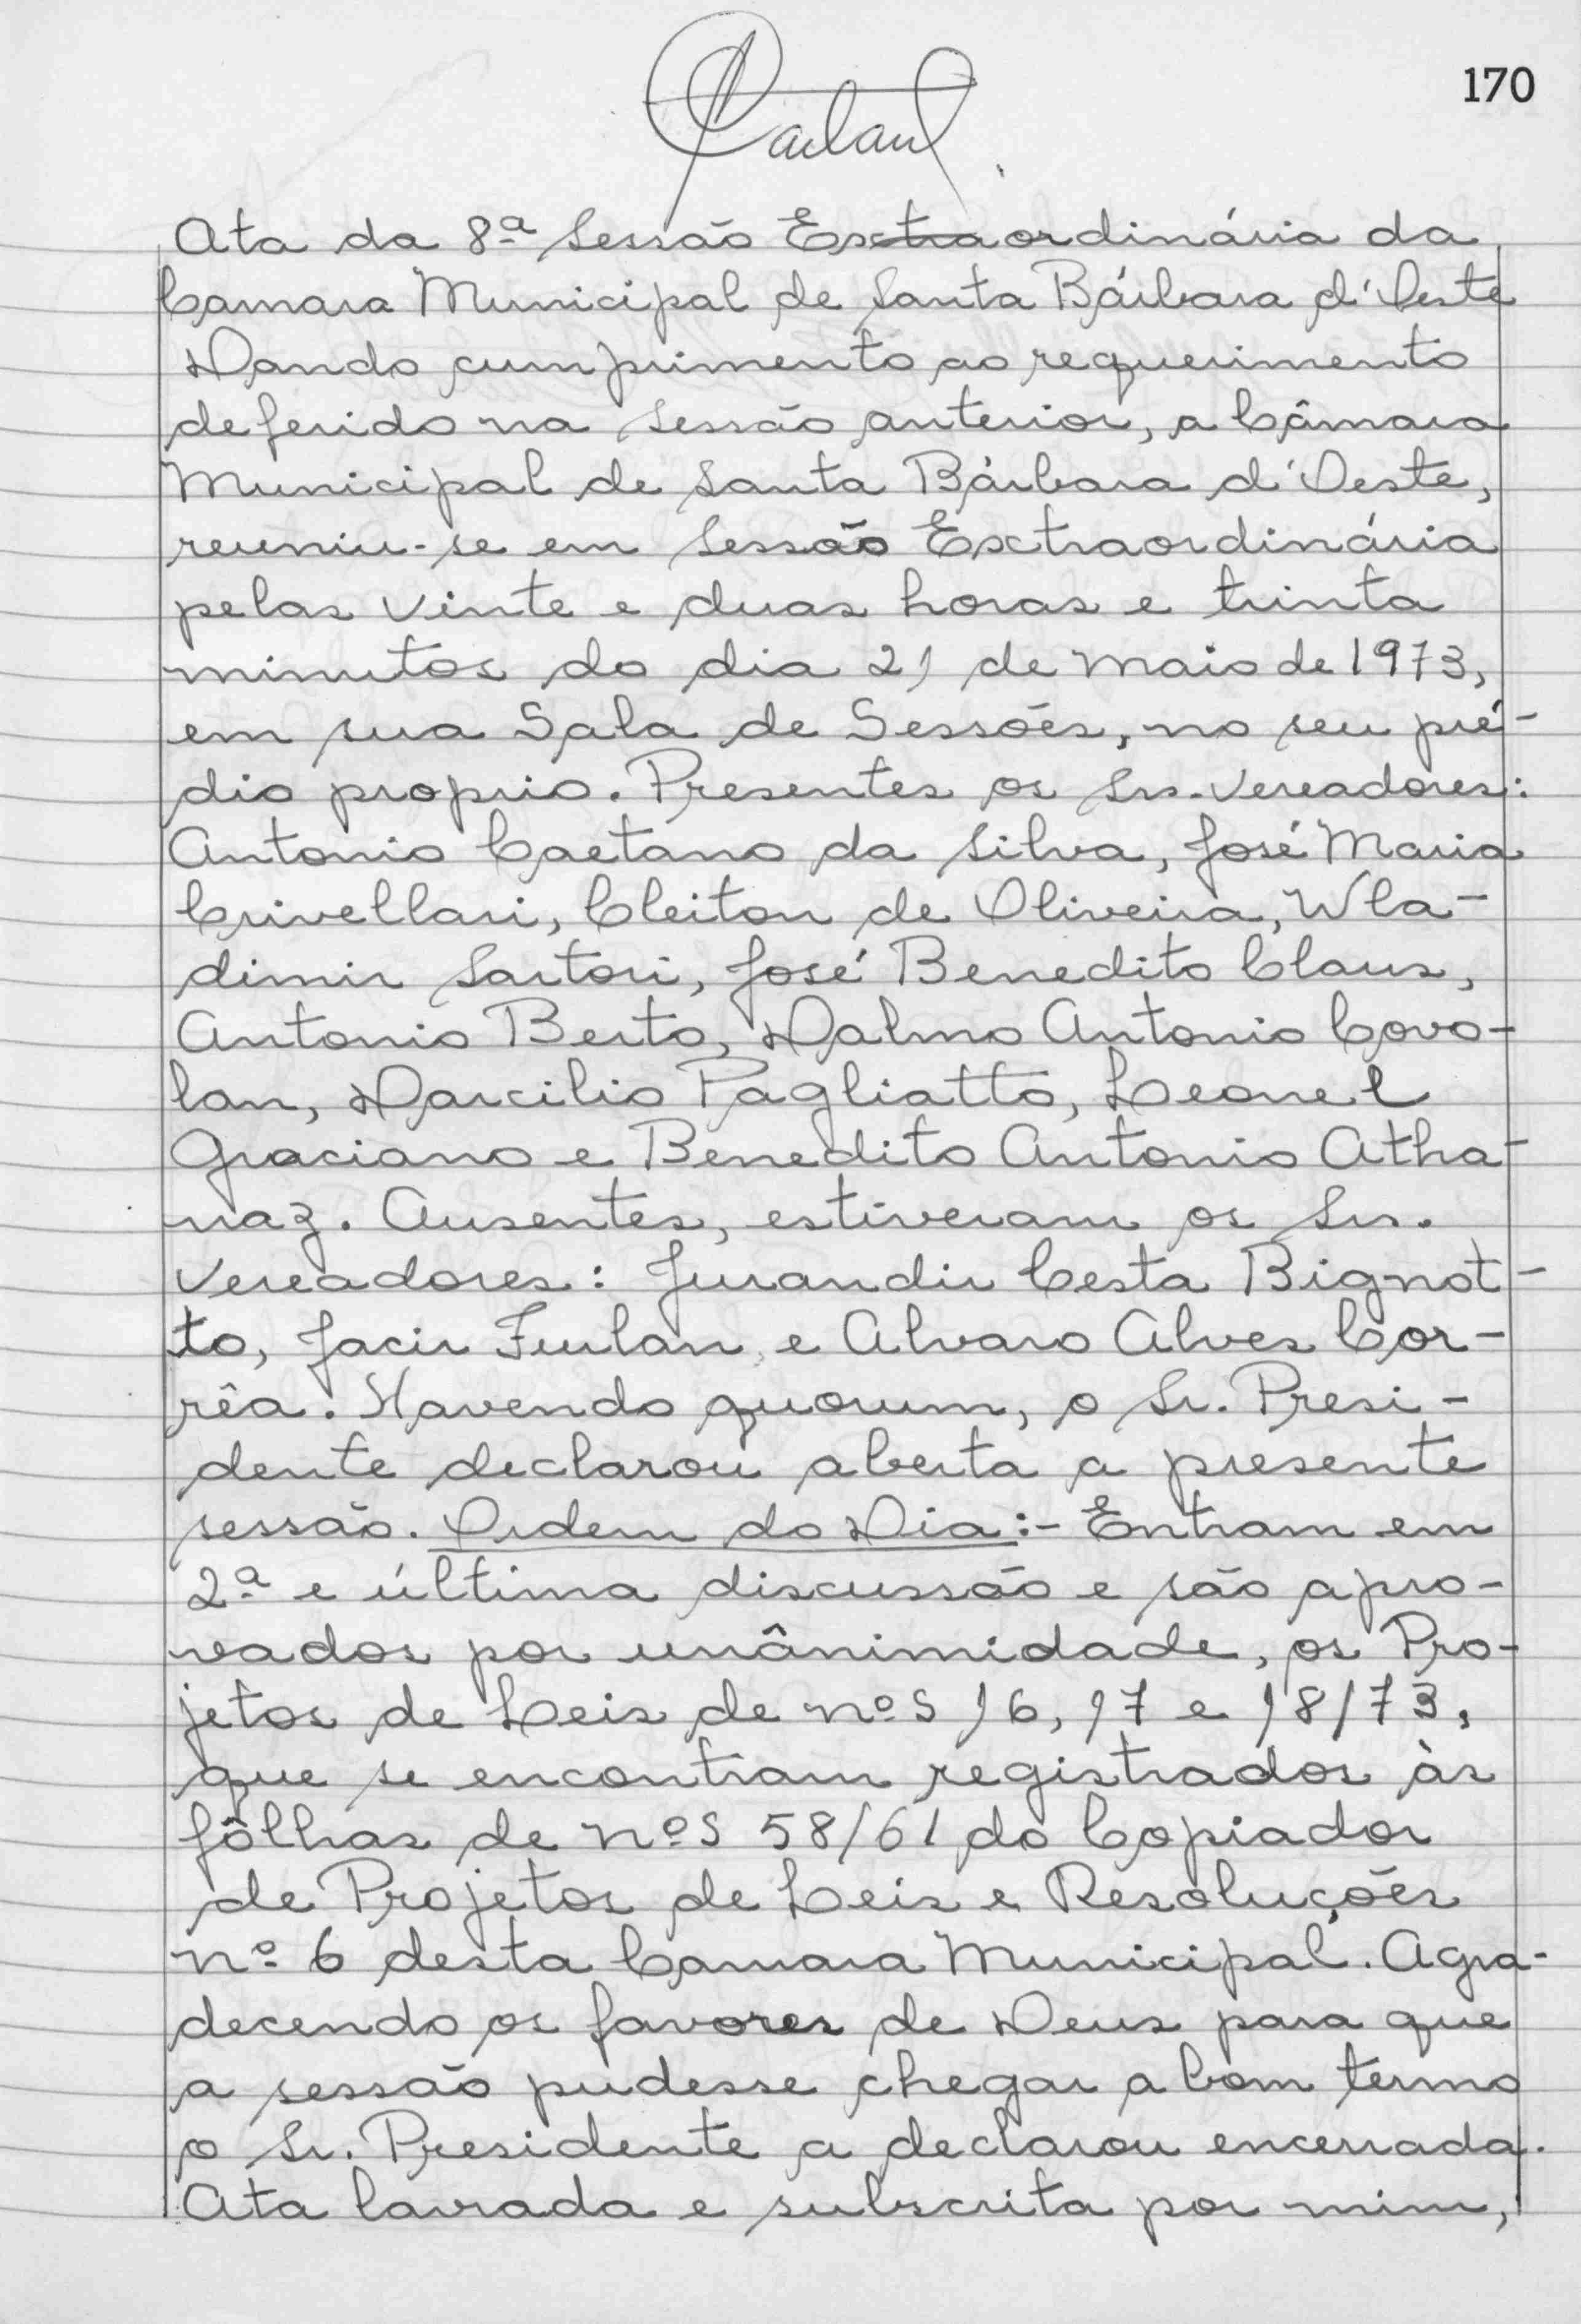 170
Ata da 8ª Sessão Extraordinária da
Camara Municipal de Santa Bárbara d'Oeste
Dando cumprimento ao requerimento
deferido na sessão anterior, a Câmara
Municipal de Santa Bárbara d'Oeste,
reuniu-se em Sessão Extraordinária
pelas vinte e duas horas e trinta
minutos do dia 21 de maio de 1973,
em sua Sala de Sessões, no seu pré-
dio proprio. Presentes os Srs. Vereadores:
Antonio Caetano da Silva, José Maria
Crivellari, Cleiton de Oliveira, Wla-
dimir Sartori, José Benedito Claus,
Antonio Berto, Dalmo Antonio Covo-
lan, Darcilio Pagliatto, Leonel
Graciano e Benedito Antonio Atha-
naz. Ausentes, estiveram os Srs.
Vereadores: Jurandir Cesta Bignot-
to, Jacir Furlan, e Alvaro Alves Cor-
rêa. Havendo quorum, o Sr. Presi-
dente declarou aberta a presente
sessão. Ordem do Dia:- Entram em
2ª e última discussão e são apro-
vados por unânimidade, os Pro-
jetos de Leis de nºs 16, 17 e 18/73,
que se encontram registrados às
fôlhas de nºs 58/61 do Copiador
de Projetos de Leis e Resoluções
nº 6 desta Camara Municipal. Agra-
decendo os favores de Deus para que
a sessão pudesse chegar a bom termo
o Sr. Presidente a declarou encerrada.
Ata lavrada e subscrita por mim,